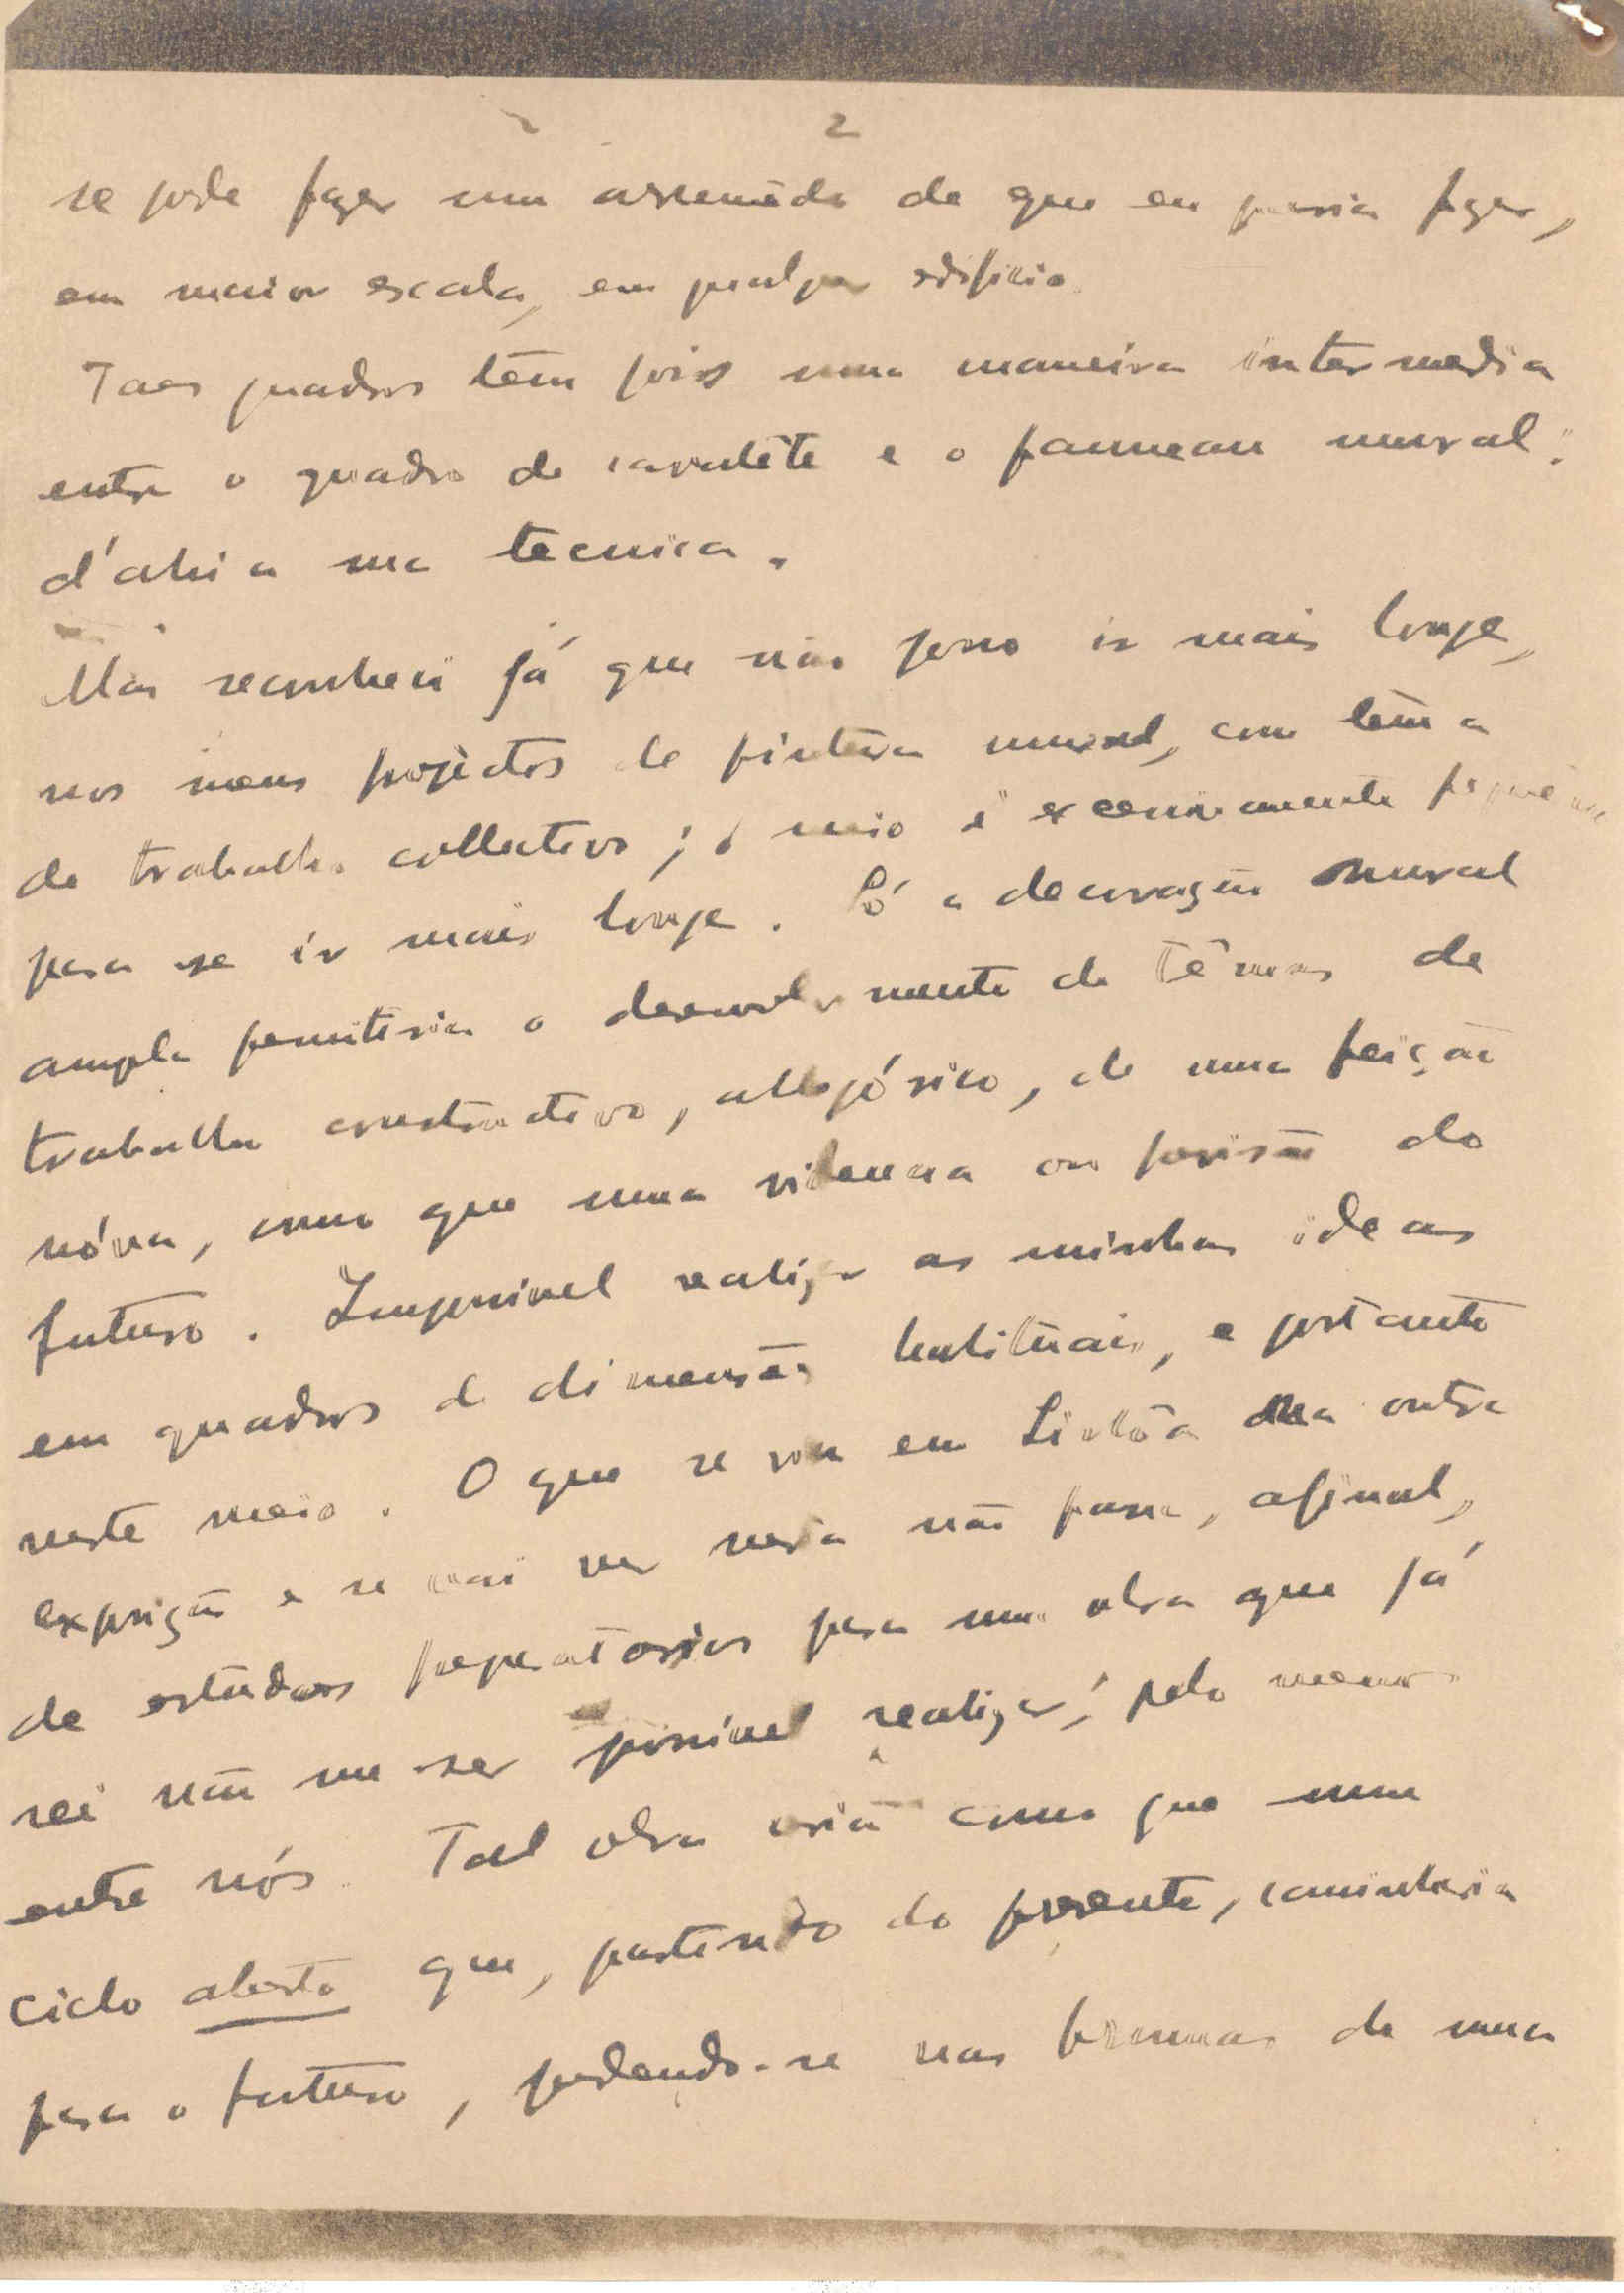 2
se pode fazer um arremêdo do que eu queria fazer,
em maior escala, em qualquer edificio.
Taes quadros têm pois uma maneira intermedia
entre o quadro de cavalête e o panneau mural:
d'ahi a sua tecnica.
Mas reconheci já que não posso ir mais longe,
nos meus projectos de pintura mural, com têma
de trabalho collectivo; o meio é excessivamente pequeno
para se ir mais longe. Só a decoração mural
ampla permitiria o desenvolvimento de têmas de
trabalho constructivo, allegórico, de uma feição
nóva, como que uma videncia ou previsão do
futuro. Impossivel realizar as minhas ideas
em quadros de dimensões habituais, e portanto
neste meio. O que se viu em Lisbôa na outra
exposição e se vai ver nesta não passa, afinal,
de estudos preparatorios para uma obra que já
sei não me ser possivel realizar; pelo menos
entre nós. Tal obra seria como que um
ciclo aberto que, partindo do presente, caminharia
para o futuro, perdendo-se nas brumas de uma